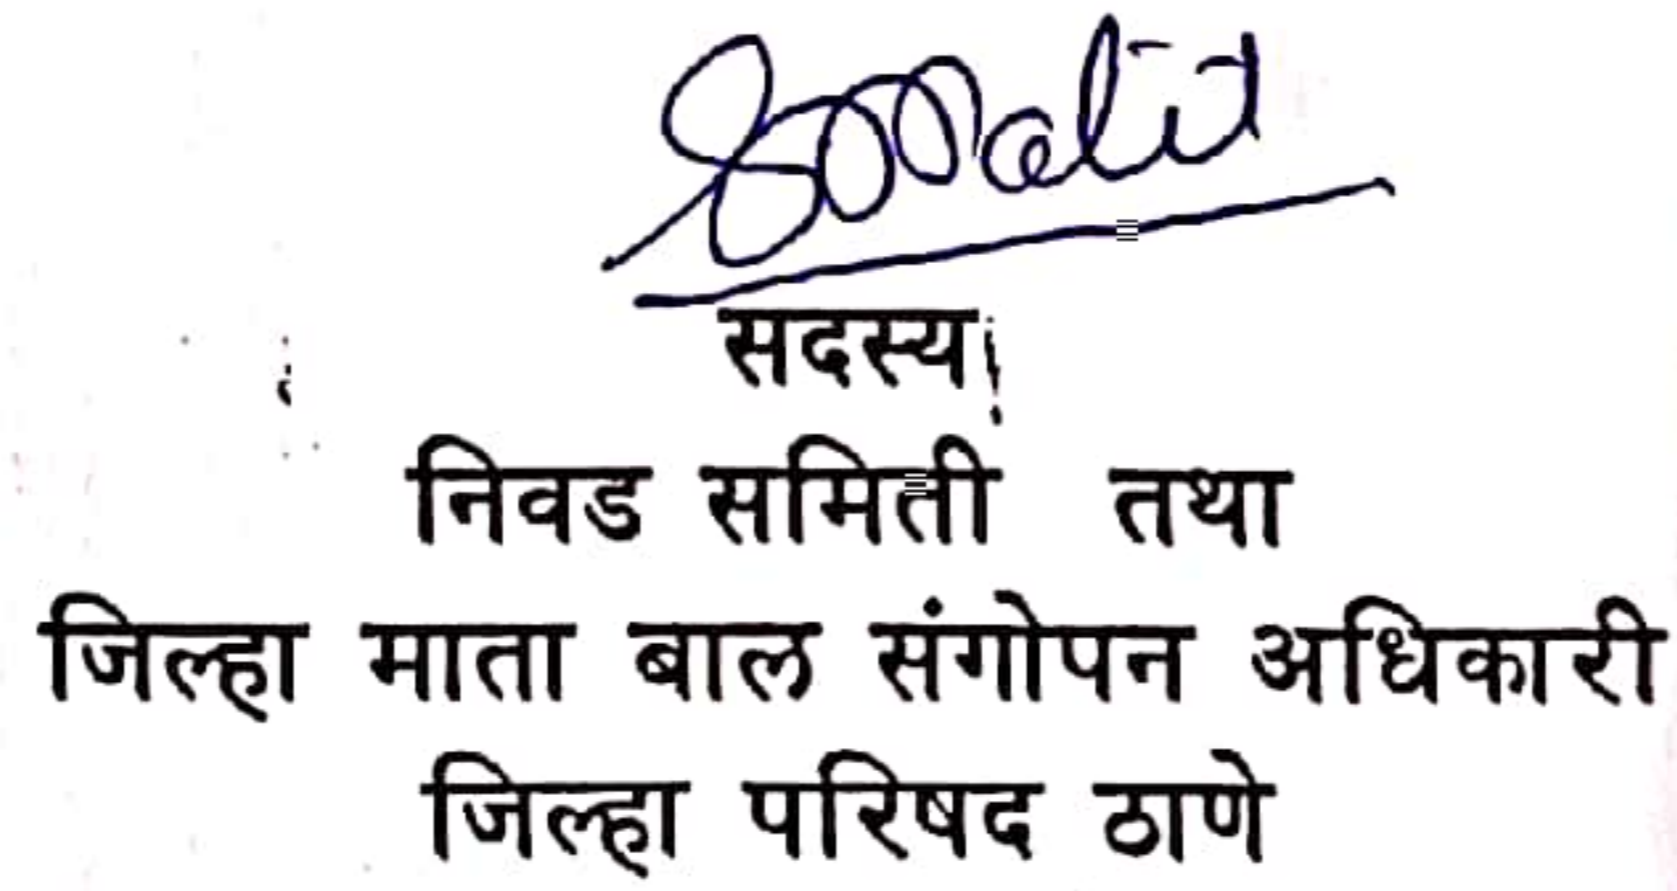 सदस्य
निवड समिती तथा
जिल्हा माता बाल संगोपन अधिकारी
जिल्हा परिषद ठाणे